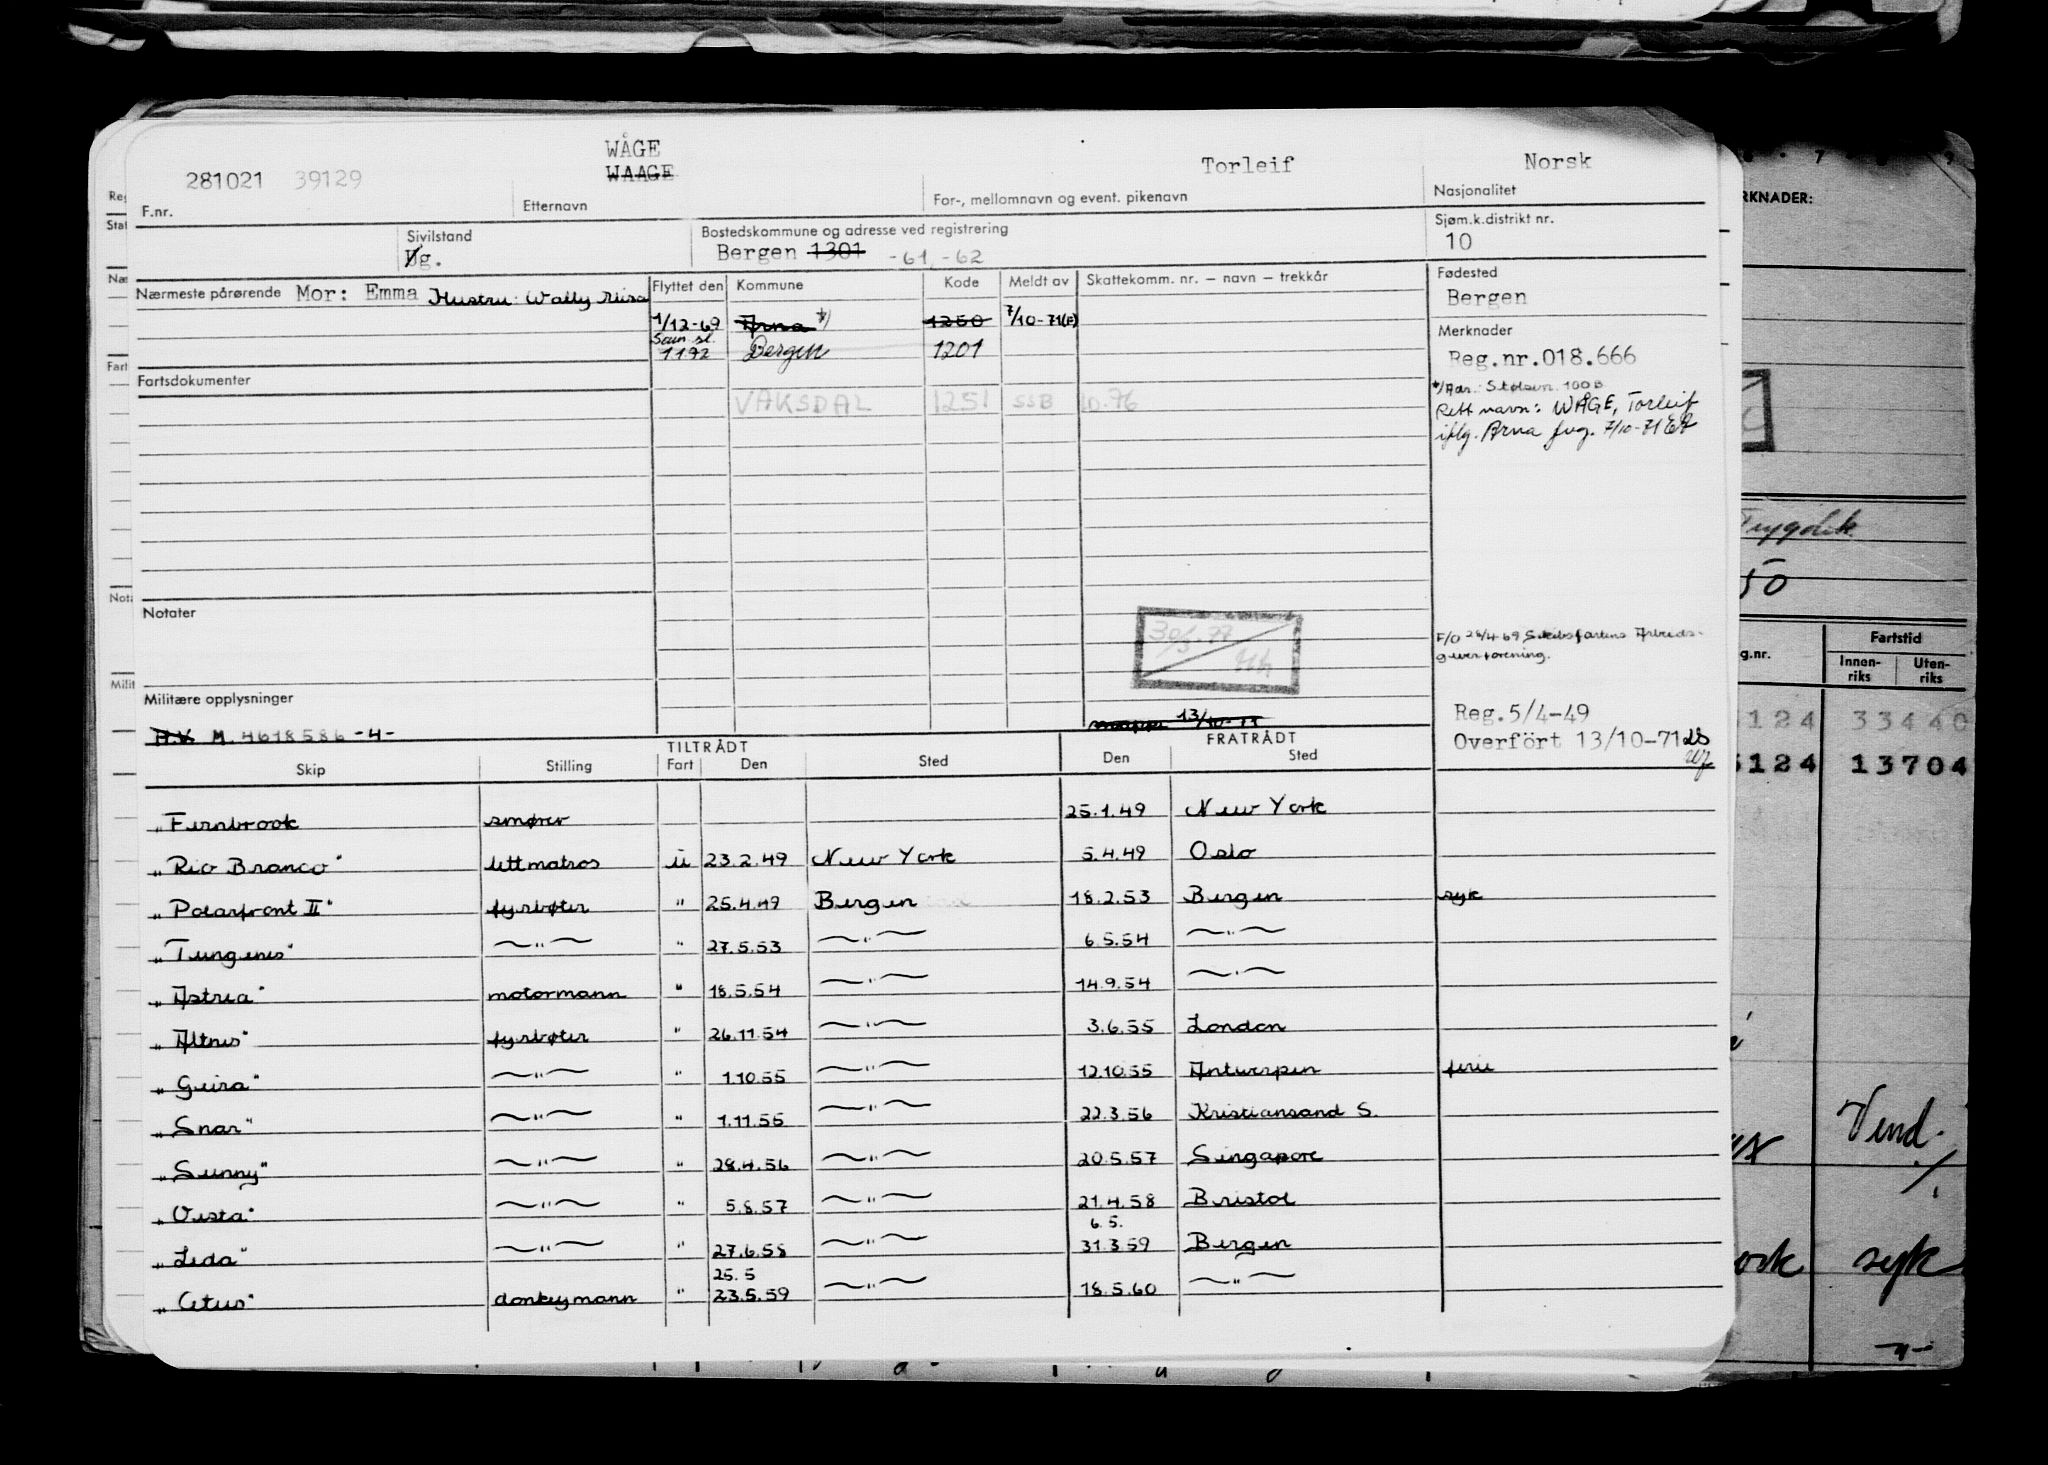 WÅGE
WAAGE
Torleif
Norsk
281021 39129
F.nr.
Etternavn
For-, mellomnavn og event. pikenavn
Nasjonalitet
Sivilstand
Ug.
Bostedskommune og adresse ved registrering
Bergen 1301 -61, -62
Sjøm.k.distrikt nr.
10
Nærmeste pårørende Mor: Emma Hustru: Wally
Flyttet den Kommune Kode Meldt av Skattekomm. nr. — navn — trekkår
Fødested
Bergen
1/12-69 Arna *) 1250 7/10-71(E)
1192 Bergen 1201
Merknader
Reg.nr.018.666
Fartsdokumenter
VAKSDAL 1251 SSB 10.76
*/Adr.: Stølsvn. 100B
Rett navn: WÅGE, Torleif
iflg. Arna fvg. 7/10-71
Notater
30/3-77
F/O 28/4-69 Skibsfartens Arbeids-
giverforening.
Militære opplysninger
H.V. M. 4618586 -4-
13/10-71
Reg.5/4-49
Overfört 13/10-71
TILTRÅDT FRATRÅDT
Skip Stilling Fart Den Sted Den Sted
"Fernbrook smører 25.1.49 New York
"Rio Branco" lettmatros u 23.2.49 New York 5.4.49 Oslo
"Polarfront II" fyrbøter " 25.4.49 Bergen 18.2.53 Bergen syk
"Tungenes" —"— " 27.5.53 —"— 6.5.54 —"—
"Astrea" motormann " 18.5.54 —"— 14.9.54 —"—
"Altnes" fyrbøter " 26.11.54 —"— 3.6.55 London
"Geira" —"— " 1.10.55 —"— 12.10.55 Antwerpen ferie
"Snar" —"— " 1.11.55 —"— 22.3.56 Kristiansand S.
"Sunny" —"— " 28.4.56 —"— 20.5.57 Singapore
"Vesta" —"— " 5.8.57 —"— 21.4.58 Bristol
6.5.
"Leda" —"— " 27.6.58 —"— 31.3.59 Bergen
25.5
"Cetus" donkeymann " 23.5.59 —"— 18.5.60 —"—
RKNADER:
50
Fartstid
g.nr. Innen-
riks Uten-
riks
124 33440
124 13704
Vend.
syk